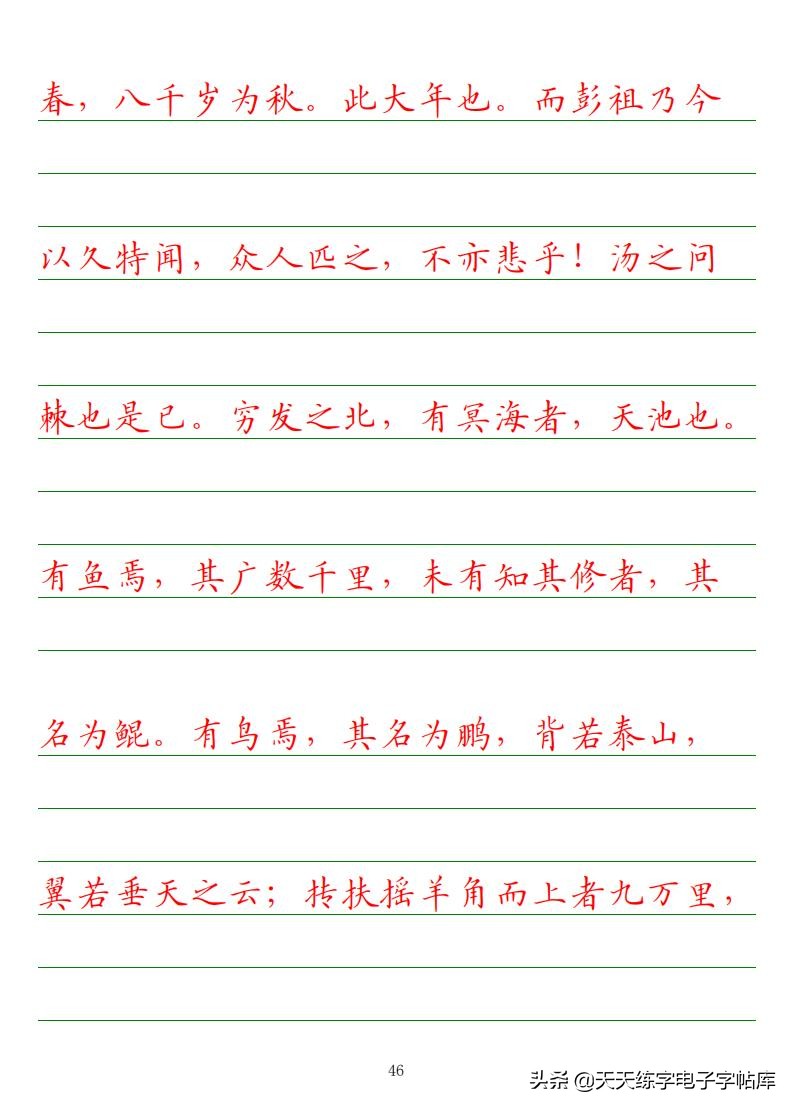 春，八千岁为秋。此大年也。而彭祖乃今
以久特闻，众人匹之，不亦悲乎！汤之问
棘也是已。穷发之北，有冥海者，天池也。
有鱼焉，其广数千里，未有知其修者，其
名为鲲。有鸟焉，其名为鹏，背若泰山，
翼若垂天之云；抟扶摇羊角而上者九万里，
46
头条 @天天练字电子字帖库